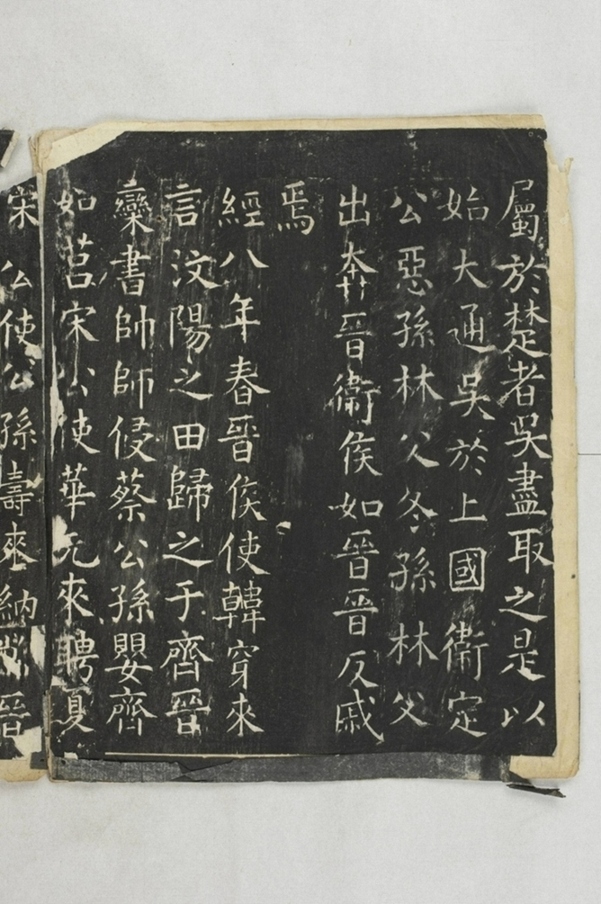 屬於楚者吳盡取之是以
始大通吳於上國衞定
公惡孫林父冬孫林父
出奔晉衞侯如晉晉反戚
焉
經八年春晉侯使韓穿來
言汶陽之田歸之于齊晉
欒書帥師侵蔡公孫嬰齊
如莒宋公使華元來聘夏
宋公使公孫壽來納幣晉